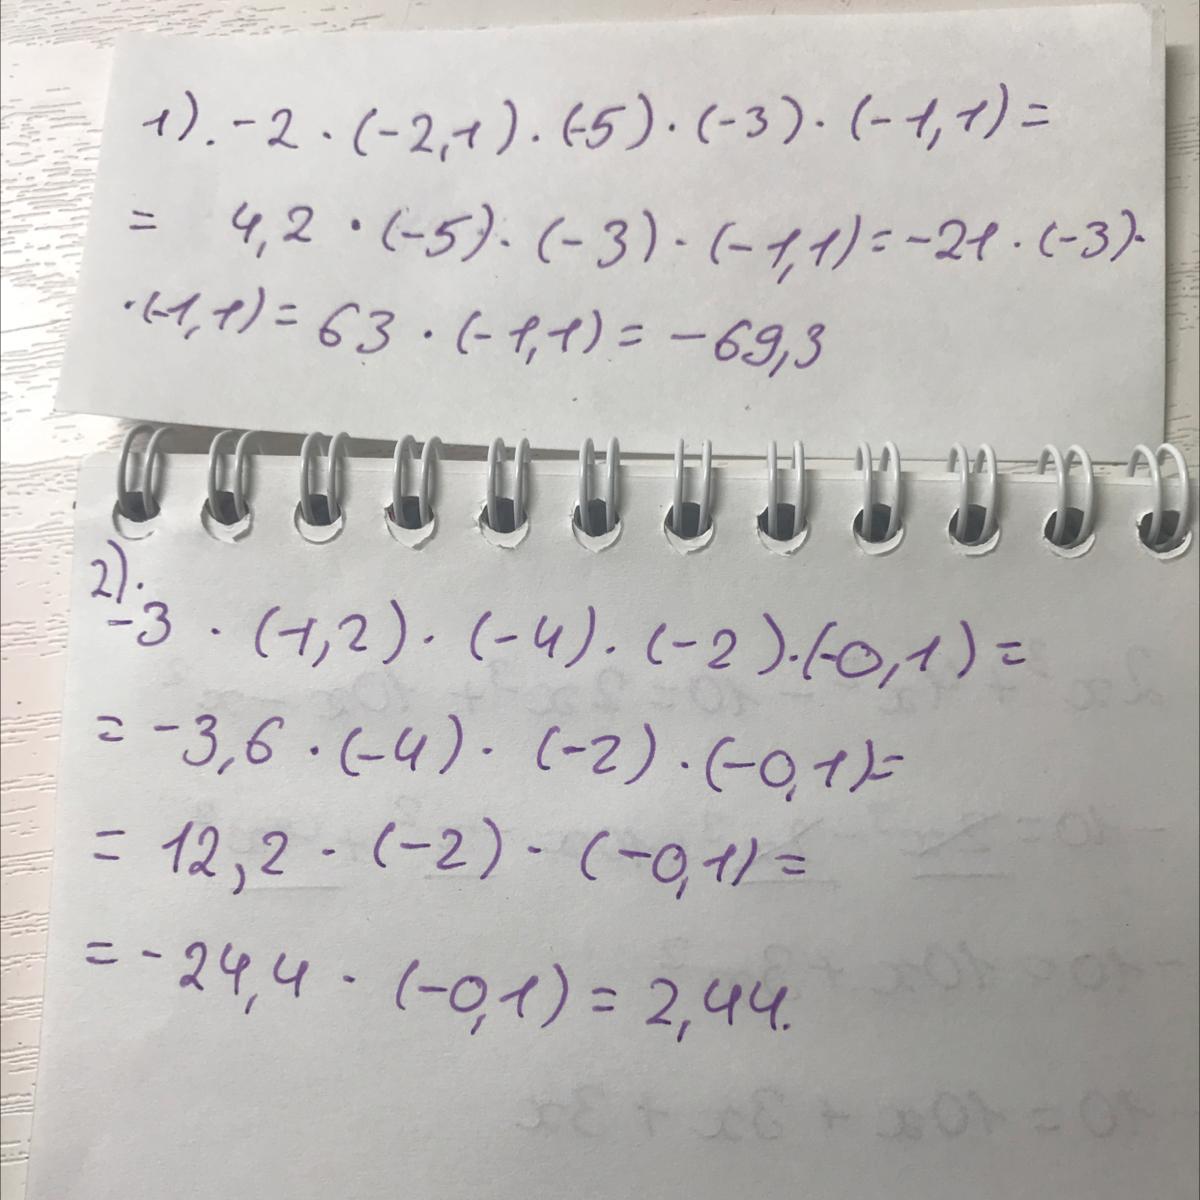 1). -2 · (-2,1) · (-5) · (-3) · (-1,1) =
= 4,2 · (-5) · (-3) · (-1,1) = -21 · (-3) ·
· (-1,1) = 63 · (-1,1) = -69,3
2).
-3 · (-1,2) · (-4) · (-2) · (-0,1) =
= -3,6 · (-4) · (-2) · (-0,1) =
= 12,2 · (-2) · (-0,1) =
= -24,4 · (-0,1) = 2,44.